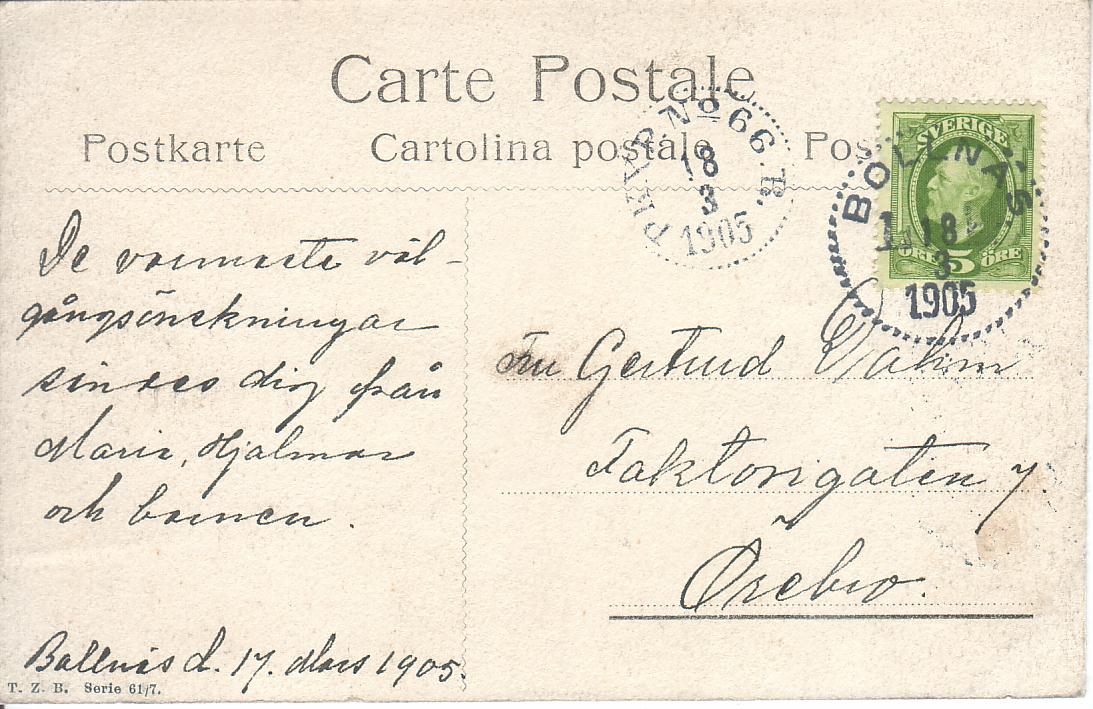 Carte Postale
Postkarte
Cartolina postale
Pos
PKXP No 66.B.
18
3
1905
SVERIGE
ÖRE 5 ÖRE
BOLLNÄS
18
3
1905
De varmaste väl-
gångsönskningar
sändes dig från
Maria, Hjalmar
och barnen.
Bollnäs d. 17. Mars 1905.
T. Z. B. Serie 61/7.
Fru Gertrud Dahm
Faktorigatan 7.
Örebro.